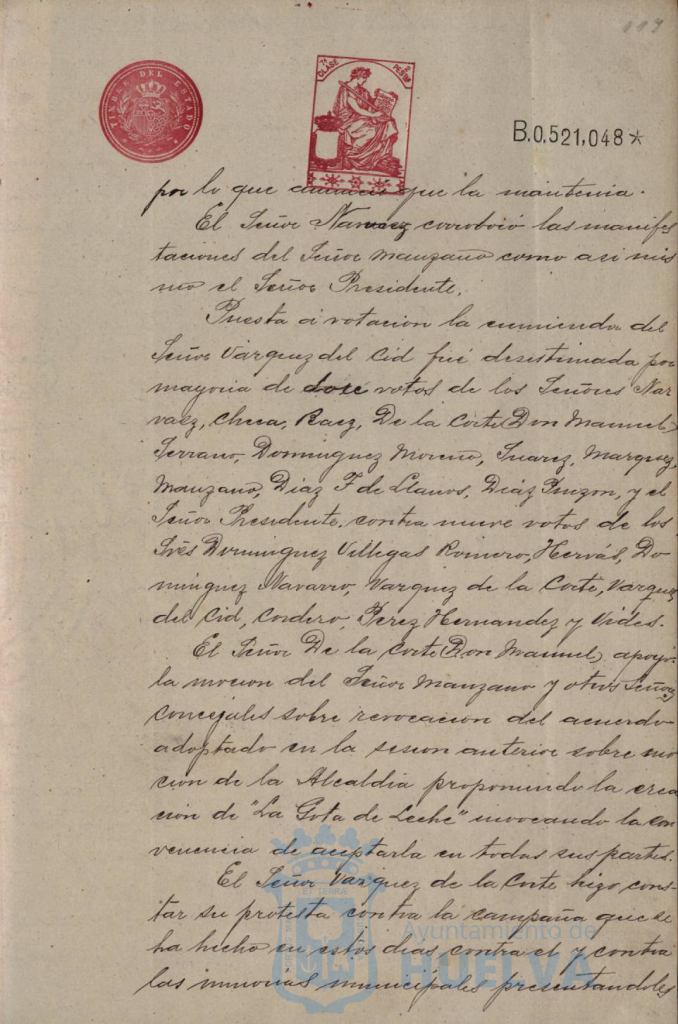 119
TIMBRE DEL ESTADO
7ª CLASE 2 PESETAS
B.0.521,048*
por lo que anunció que la mantenia.
El Señor Narvaez corroboró las manifes
taciones del Señor Manzano como asi mis
mo el Señor Presidente.
Puesta á votacion la enmienda del
Señor Vazquez del Cid fué desestimada por
mayoria de doce votos de los Señores Nar
vaez, Checa, Raez, De la Corte (Don Manuel)
Serrano, Dominguez Moreno, Suarez, Marquez,
Manzano, Diaz F de Llanos, Diaz Pinzon, y el
Señor Presidente, contra nueve votos de los
Srés Dominguez Villegas Romero, Hervás, Do
minguez Navarro, Vazquez de la Corte, Vazquez
del Cid, Cordero, Perez Hernandez y Vides.
El Señor De la Corte (Don Manuel) apoyó
la mocion del Señor Manzano y otros Señores
Concejales sobre revocacion del acuerdo
adoptado en la sesion anterior sobre mo
cion de la Alcaldia proponiendo la crea
cion de "La Gota de Leche" invocando la con
veniencia de aceptarla en todas sus partes.
El Señor Vazquez de la Corte hizo cons-
tar su protesta contra la campaña que se
ha hecho en estos dias contra el y contra
las minorias municipales presentandoles
Ayuntamiento de
HUELVA